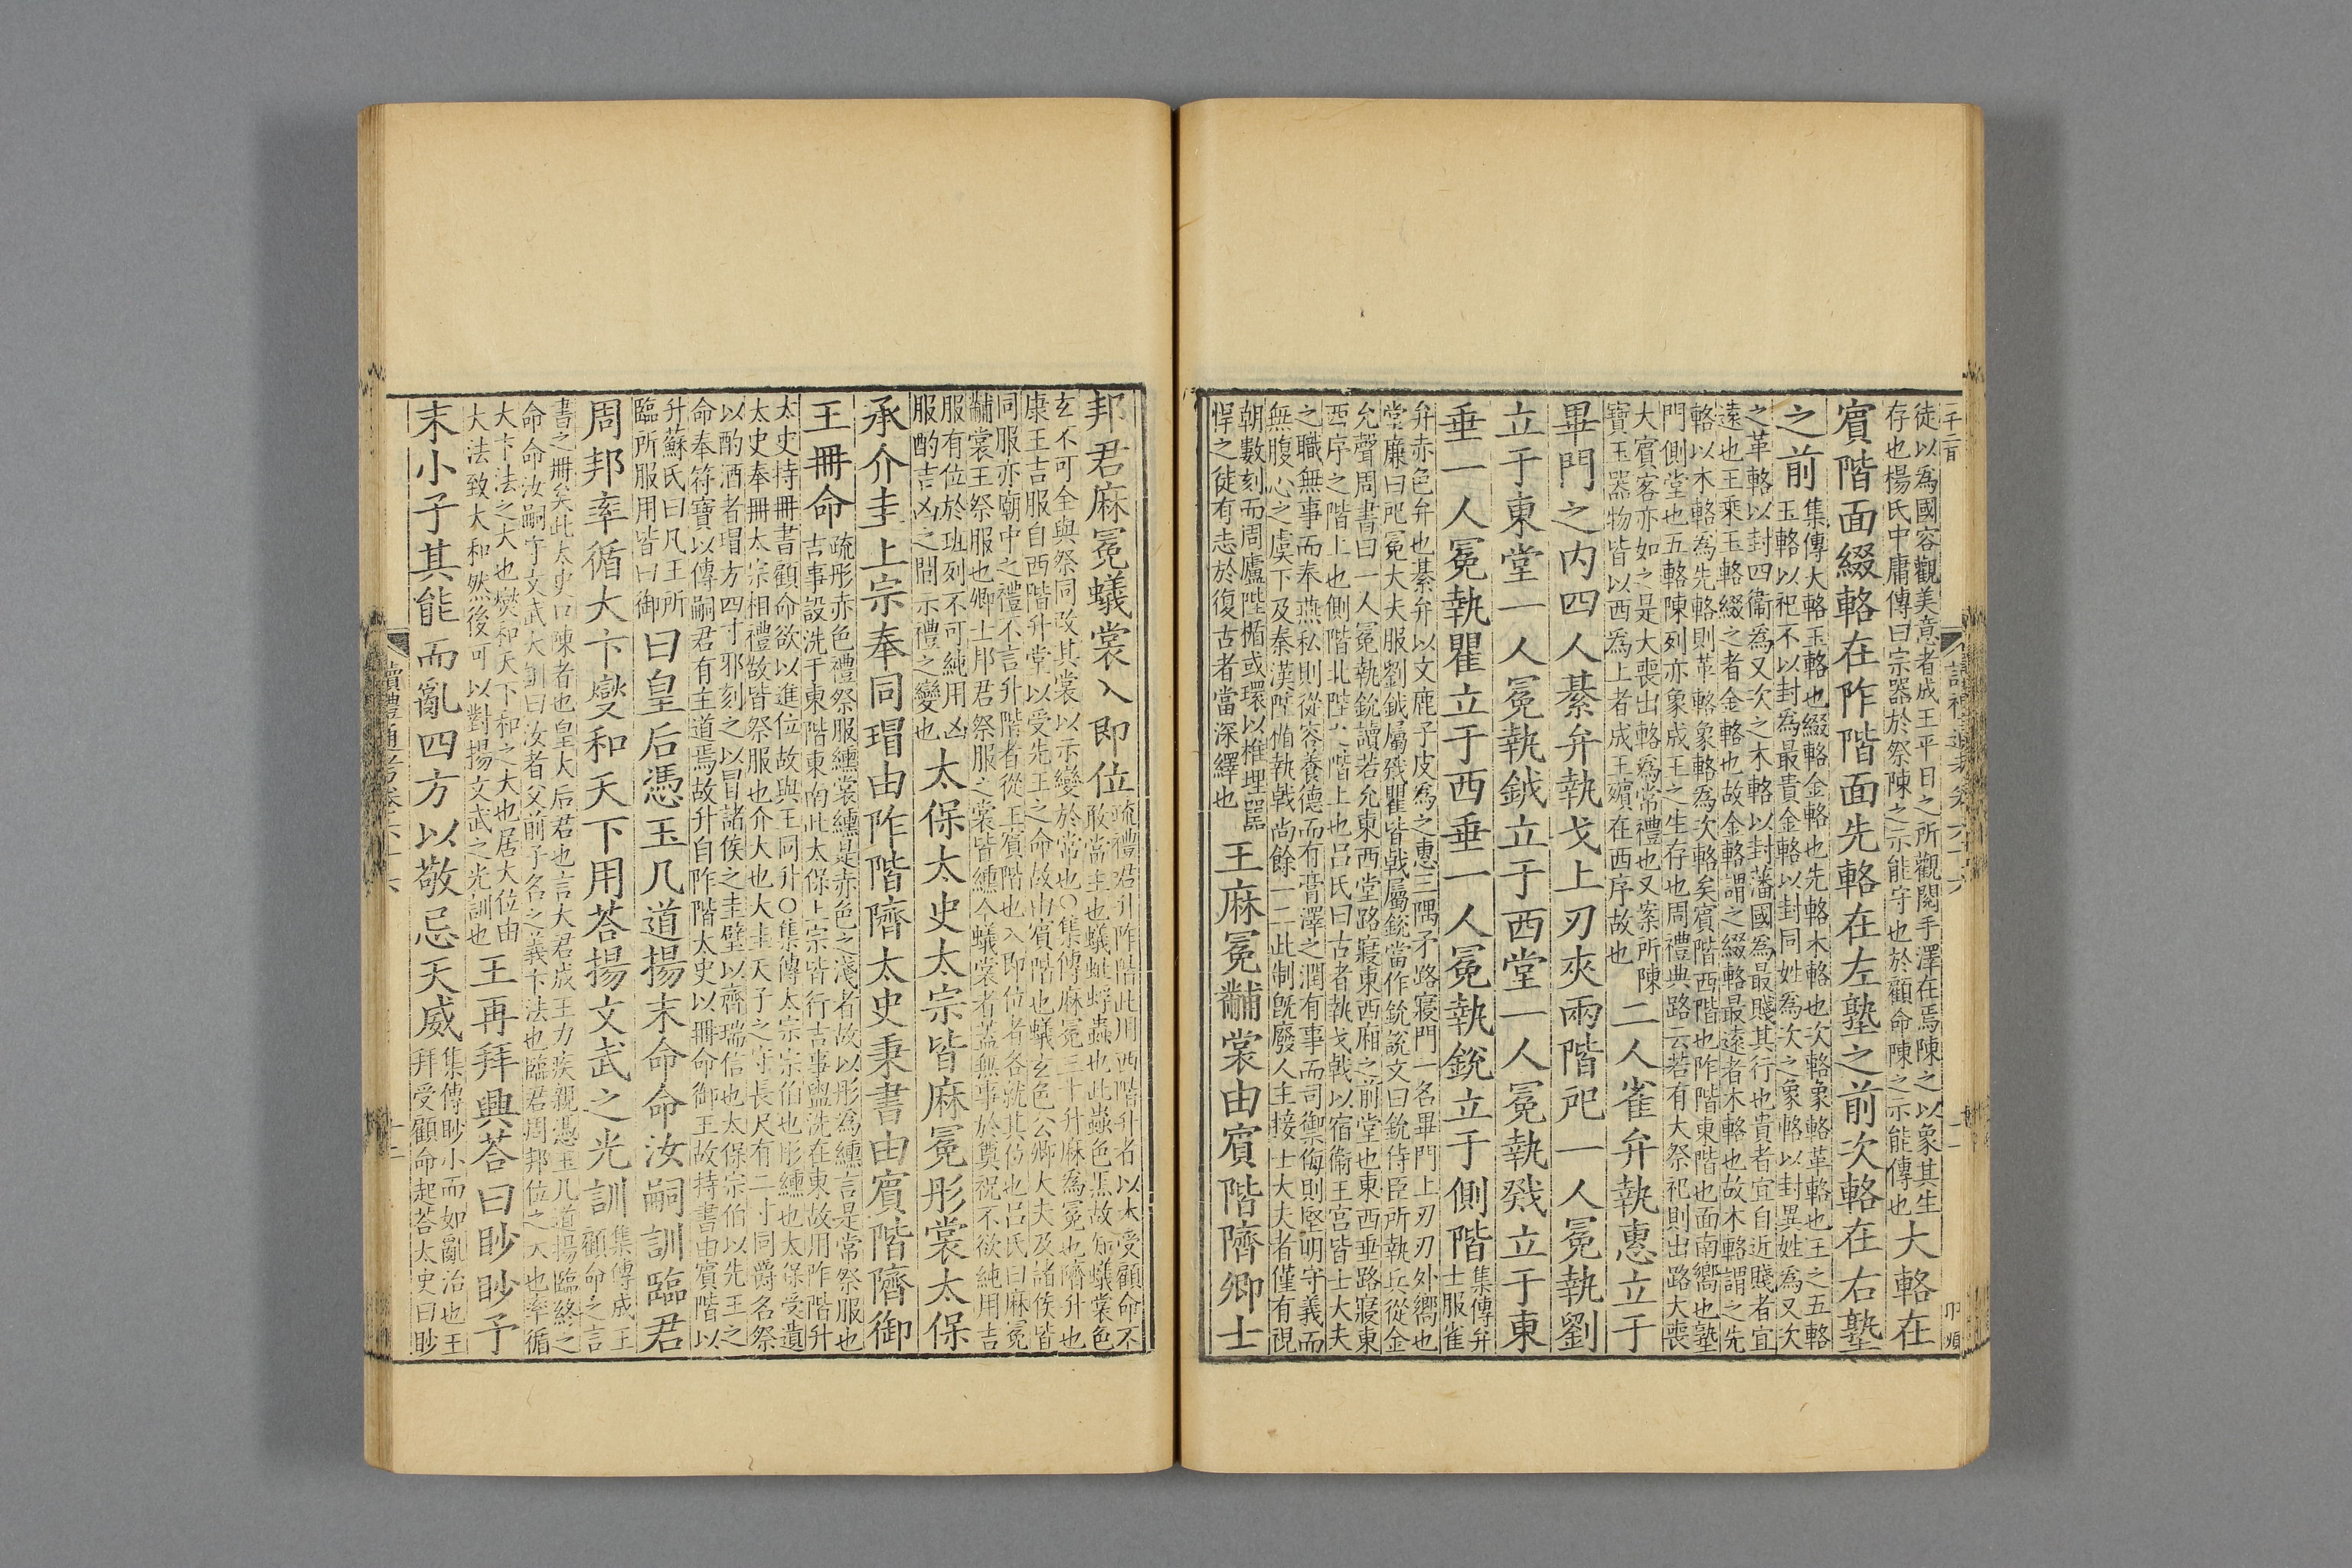 讀禮通考卷六十六
十一
徒以為國容觀美意者成王平日之所觀閱手澤在焉陳之以象其生
存也楊氏中庸傳曰宗器於祭陳之示能守也於顧命陳之示能傳也
大輅在
賓階面綴輅在阼階面先輅在左塾之前次輅在右塾
之前
集傳大輅玉輅也綴輅金輅也先輅木輅也次輅象輅革輅也王之五輅
玉輅以祀不以封為最貴金輅以封同姓為次之象輅以封異姓為又次
之革輅以封四衛為又次之木輅以封藩國為最賤其行也貴者宜自近賤者宜
遠也王乘玉輅綴之者金輅也故金輅謂之綴輅最遠者木輅也故木輅謂之先
輅以木輅為先輅則革輅象輅為次輅矣賓階西階也阼階東階也面南嚮也塾
門側堂也五輅陳列亦象成王之生存也周禮典路云若有大祭祀則出路大喪
大賓客亦如之是大喪出輅為常禮也又案所陳
寶玉器物皆以西為上者成王殯在西序故也
二人雀弁執惠立于
畢門之内四人綦弁執戈上刃夾兩階戺一人冕執劉
立于東堂一人冕執鉞立于西堂一人冕執戣立于東
垂一人冕執瞿立于西垂一人冕執銳立于側階
集傳弁
士服雀
弁赤色弁也綦弁以文鹿子皮為之惠三隅矛路寢門一名畢門上刃刃外嚮也
堂廉曰戺冕大夫服劉鉞屬戣瞿皆戟屬銳當作鈗說文曰鈗侍臣所執兵從金
允聲周書曰一人冕執鈗讀若允東西堂路寢東西廂之前堂也東西垂路寢東
西序之階上也側階北陛之階上也呂氏曰古者執戈戟以宿衛王宫皆士大夫
之職無事而奉燕私則從容養德而有膏澤之潤有事而司禦侮則堅明守義而
無腹心之虞下及秦漢陛楯執戟尚餘一二此制旣廢人主接士大夫者僅有視
朝數刻而周廬陛楯或環以椎埋嚚
悍之徒有志於復古者當深繹也
王麻冕黼裳由賓階隮卿士
邦君麻冕蟻裳入即位
疏禮君升阼階此用西階升者以未受顧命不
敢當主也蟻蚍蜉蟲也此蟲色黑故知蟻裳色
玄不可全與祭同改其裳以示變於常也○集傳麻冕三十升麻為冕也隮升也
康王吉服自西階升堂以受先王之命故由賓階也蟻玄色公卿大夫及諸侯皆
同服亦廟中之禮不言升階者從王賓階也入即位者各就其位也呂氏曰麻冕
黼裳王祭服也卿士邦君祭服之裳皆纁今蟻裳者蓋無事於奠祝不欲純用吉
服有位於班列不可純用凶
服酌吉凶之間示禮之變也
太保太史太宗皆麻冕彤裳太保
承介圭上宗奉同瑁由阼階隮太史秉書由賓階隮御
王冊命
疏彤赤色禮祭服纁裳纁是赤色之淺者故以彤為纁言是常祭服也
吉事設洗于東階東南此太保上宗皆行吉事盥洗在東故用阼階升
太史持冊書顧命欲以進位故與王同升○集傳太宗宗伯也彤纁也太保受遺
太史奉冊太宗相禮故皆祭服也介大也大圭天子之守長尺有二寸同爵名祭
以酌酒者瑁方四寸邪刻之以冒諸侯之圭璧以齊瑞信也太保宗伯以先王之
命奉符寶以傳嗣君有主道焉故升自阼階太史以冊命御王故持書由賓階以
升蘇氏曰凡王所
臨所服用皆曰御
曰皇后憑玉几道揚末命命汝嗣訓臨君
周邦率循大卞燮和天下用荅揚文武之光訓
集傳成王
顧命之言
書之冊矣此太史口陳者也皇大后君也言大君成王力疾親憑玉几道揚臨終之
命命汝嗣守文武大訓曰汝者父前子名之義卞法也臨君周邦位之大也率循
大卞法之大也燮和天下和之大也居大位由
大法致大和然後可以對揚文武之光訓也
王再拜興荅曰眇眇予
末小子其能而亂四方以敬忌天威
集傳眇小而如亂治也王
拜受顧命起荅太史曰眇
讀禮通考卷六十六
十二